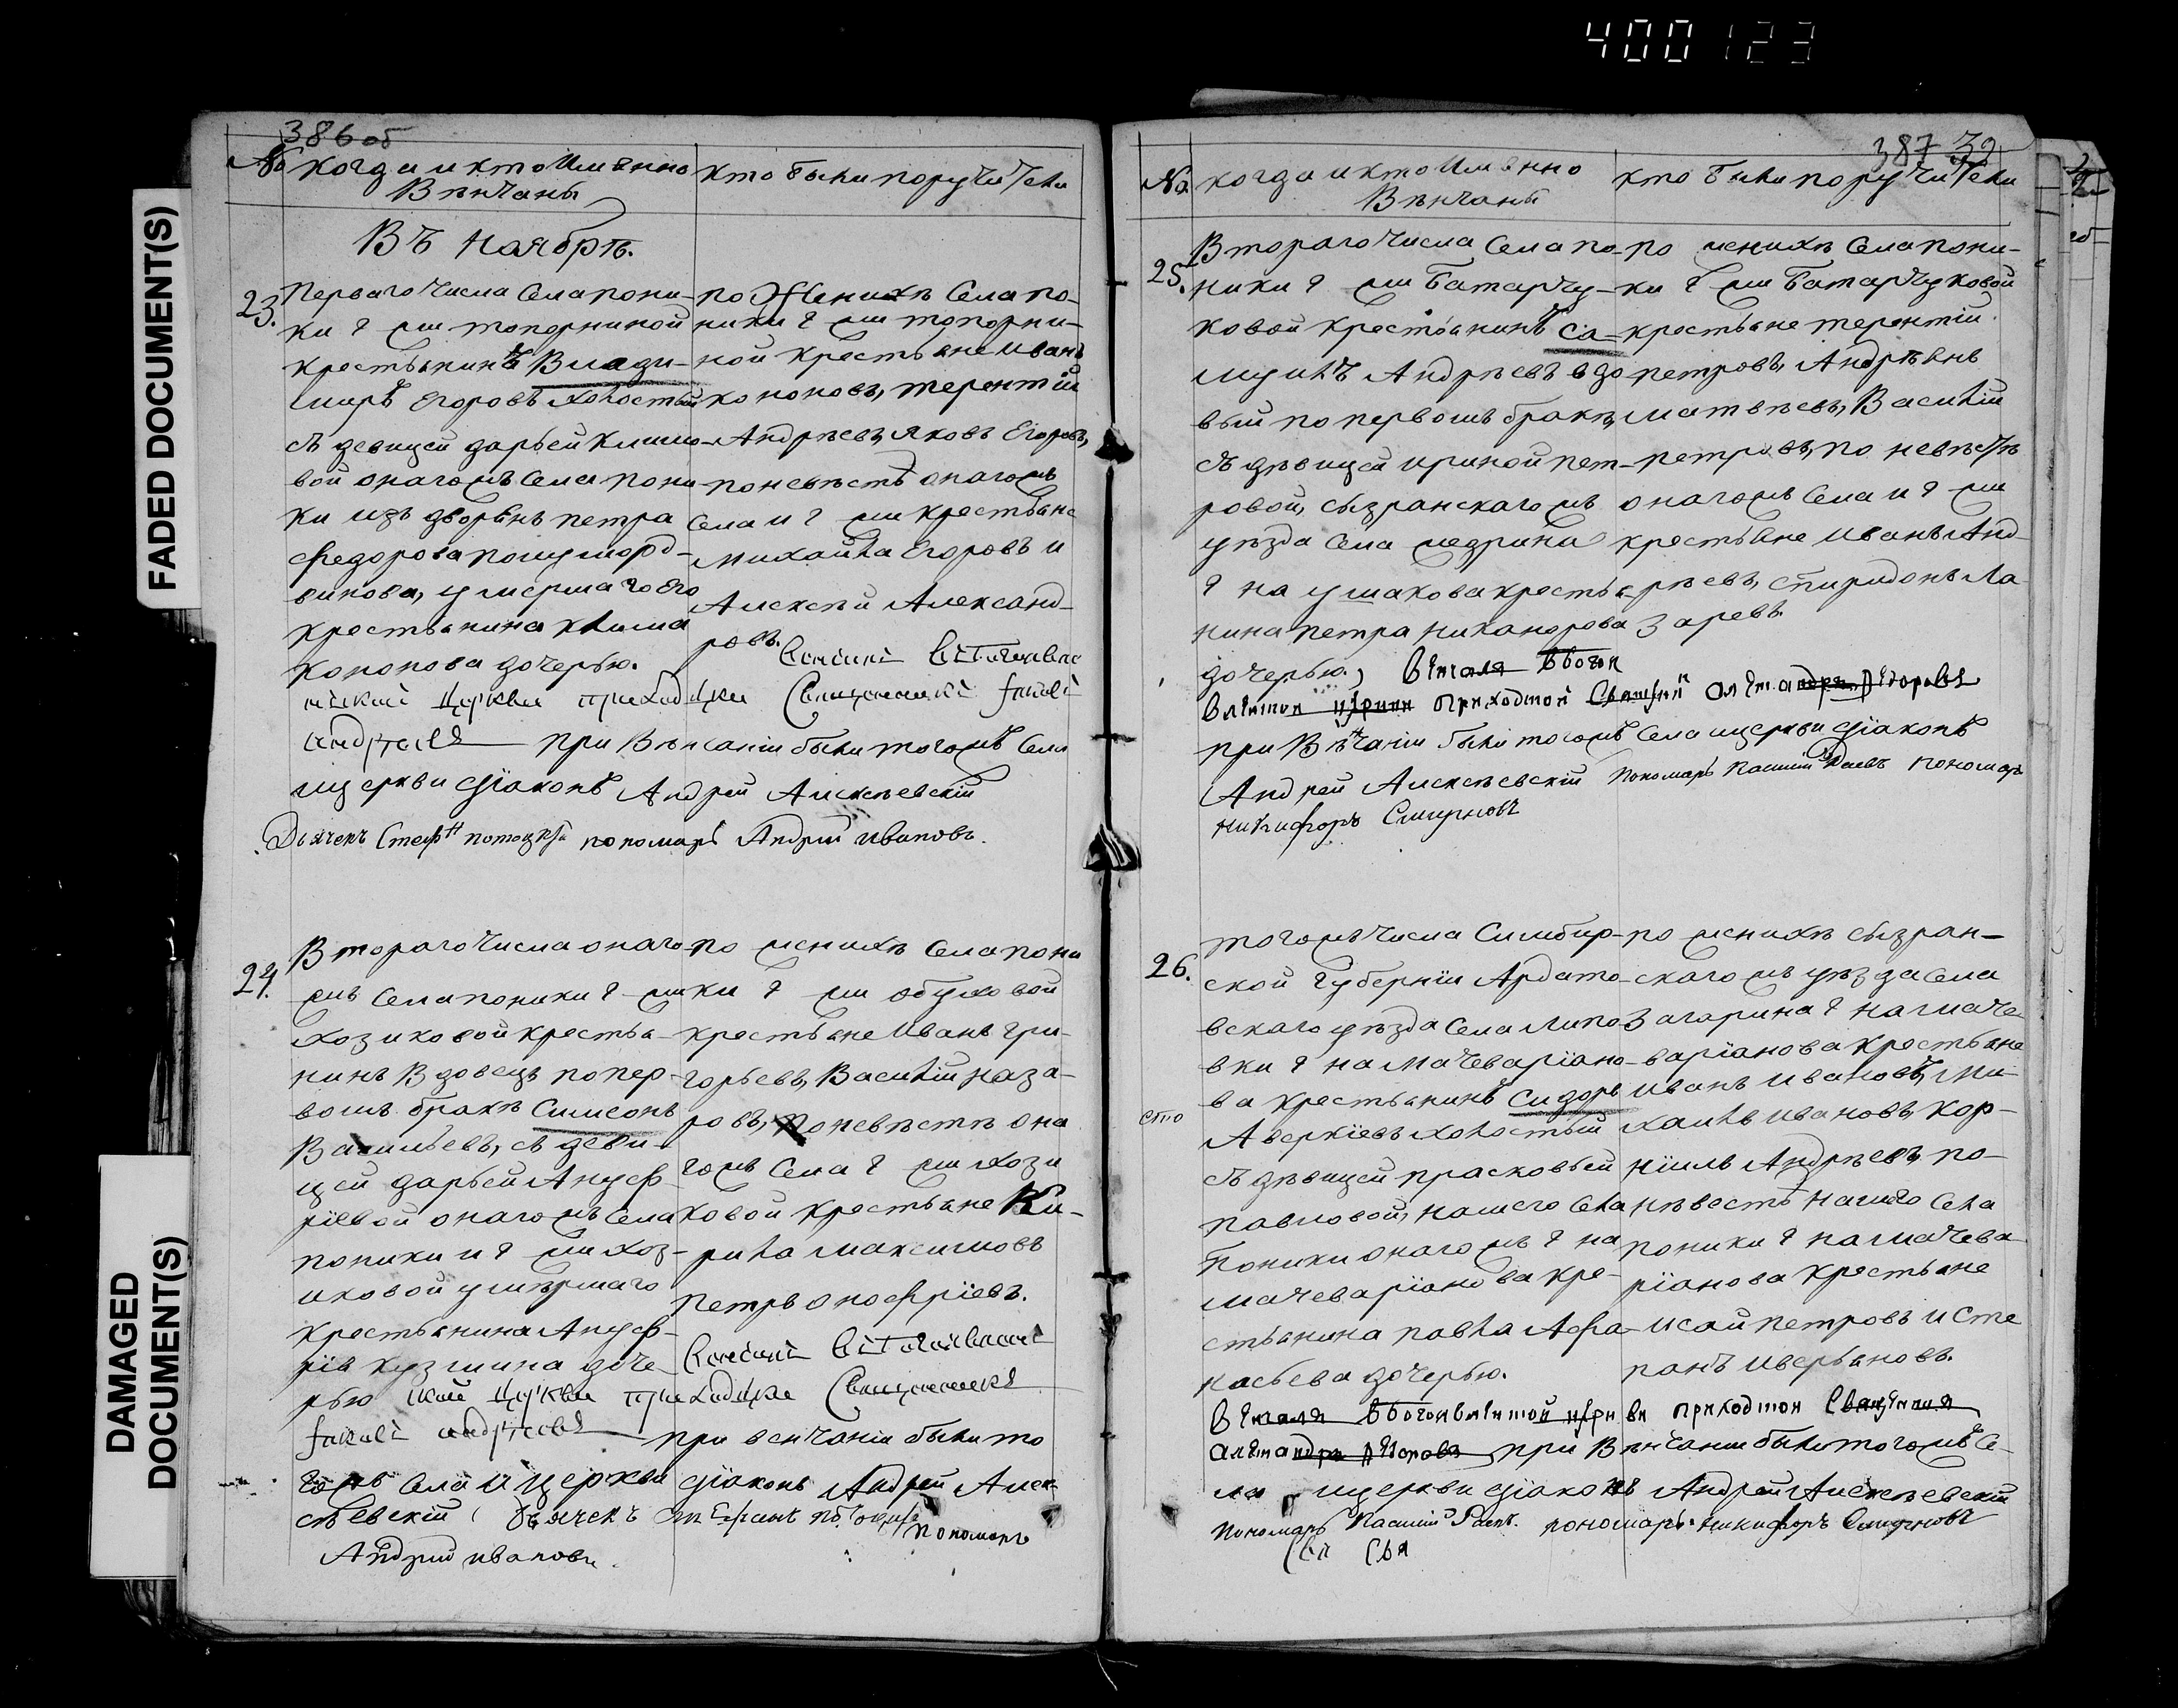 400123
FADED DOCUMENT(S)
DAMAGED DOCUMENT(S)
386 об
№ когда и кто Имянно Вѣнчаны
кто были поручители
Въ Ноябрѣ.
23.
Перваго числа Села пони-
ки г жи топорниной
крестьянинъ Влади-
миръ Егоровъ холостый
съ девицей дарьей климо-
вой онагожъ Села пони
ки изъ дворянъ петра
федорова
умершаго Его
крестьянина клима
кононова дочерью.
по Женихѣ Села по-
ники г жи топорни-
ной крестьяне Иванъ
кононовъ, терентій
Андрѣевъ, Яковъ Егоровъ,
по невѣстѣ онагожъ
Села и г жи крестьяне
михайла Егоровъ и
Алексѣй Александ-
ровъ.
церкви приходцкой Священникъ
андреевъ при Вѣнчаніи были тогожъ Села
и церкви діаконъ Андрей Алексѣевскій
Дьячекъ Стефанъ пономарь Андрей Ивановъ.
24.
Втораго числа онаго
жъ Села поники г жи
хозиковой крестья-
нинъ Вдовецъ по пер-
вомъ бракѣ Симеонъ
Васильевъ, съ деви-
цей дарьей Ануф-
ріевой онагожъ Села
поники и г жи хоз-
иковой умершаго
крестьянина Ануф-
рія кузмина доче
рью
по женихѣ Села пони
ки г жи обуховой
крестьяне Иванъ гри-
горьевъ, Василій наза-
ровъ, по невѣстѣ она
гожъ Села г жи хози
ковой крестьяне Ки-
рила максимовъ
петръ оноефріевъ.
церкви приходцкой Священникъ
андреевъ при венчаніи были то
гожъ Села и церкви діаконъ Андрей Алек
сѣевскій дьячекъ пономарь
Андрей ивановъ.
387 39
№ когда и кто Имянно Вѣнчаны
кто были поручители
25.
Втораго числа Села по-
ники г жи Батарчу-
ковой крестьянинъ Са-
муилъ Андрѣевъ вдо
вый по первомъ бракѣ,
съ дѣвицей ириной пет-
ровой, сызранскагожъ
уѣзда Села
г на ушакова крестья-
нина петра никанорова
дочерью,
по женихѣ Села пони-
ки г жи Батарчуковой
крестьяне терентій
петровъ, Андрѣянъ
матвѣевъ, Василій
петровъ, по невѣстѣ
онагожъ Села и г жи
крестьяне Иванъ Анд
рѣевъ, спиридонъ Ла
заревъ.
при Вѣнчаніи были тогожъ Села и церкви діаконъ
Андрей Алексѣевскій пономарь пономарь
никифоръ Смирновъ
26.
тогожъ числа Симбир-
ской губерніи Ардато-
вскаго уѣзда Села Липо
вки г на Мачеваріано-
ва крестьянинъ Сидоръ
Аверкіевъ холостый
съ дѣвицей прасковьей
павловой, нашего Села
Поники онагожъ г на
мачеваріанова кре-
стьянина павла Афа-
насьева дочерью.
по женихѣ сызран-
скагожъ уѣзда Села
Загарина г на маче
варіанова крестьяне
Иванъ Ивановъ, Ми-
хаилъ Ивановъ, кор-
ніилъ Андрѣевъ, по-
нѣвестѣ нашего Села
поники г на мачева
ріанова крестьяне
исай петровъ и Сте
панъ Аверьяновъ.
при Вѣнчаніи были тогожъ Се-
ла и церкви діаконъ Андрей Алексѣевскій
пономарь пономарь никифоръ Смирновъ